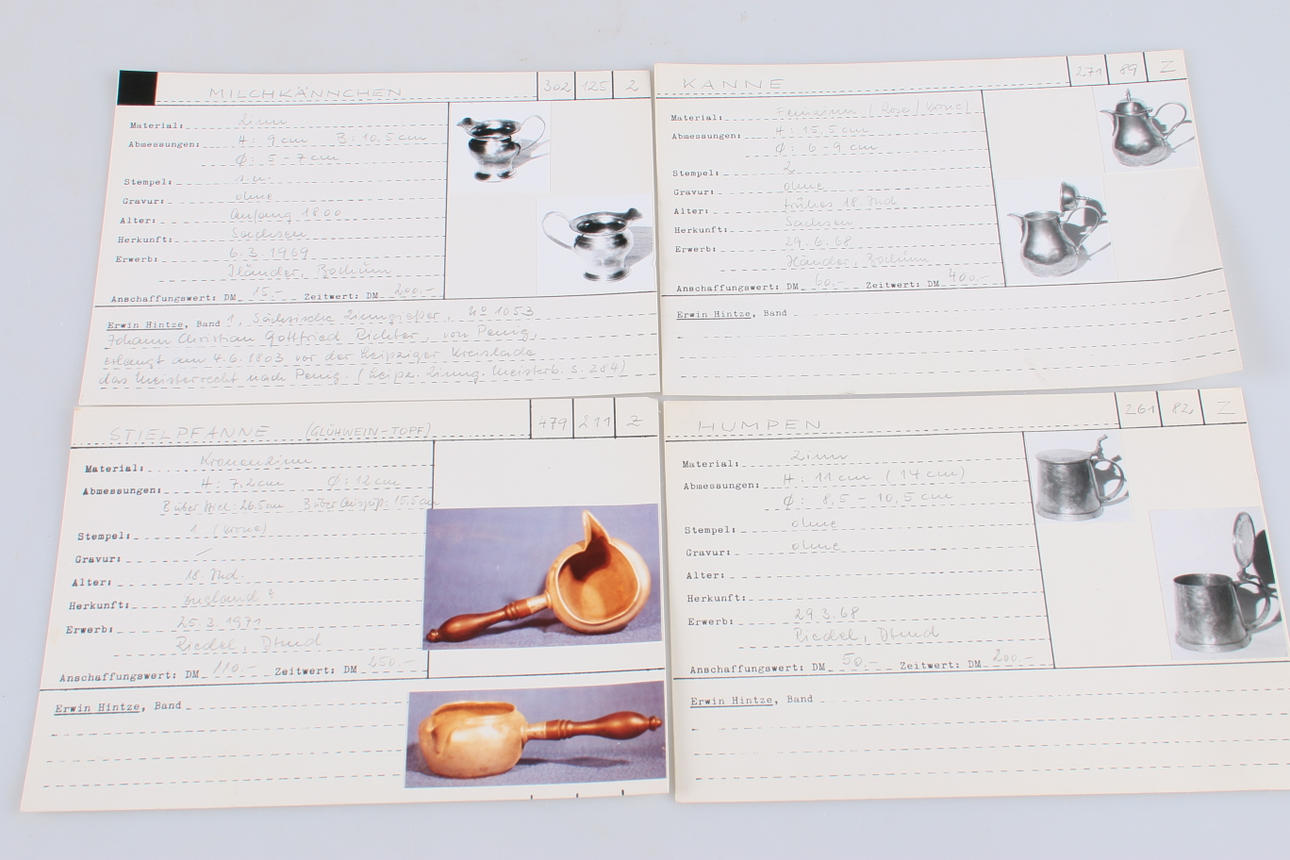 MILCHKÄNNCHEN 302 125 Z
Material: Zinn
Abmessungen: H: 9 cm B: 10,5 cm
Ø: 5 - 7 cm
Stempel: 1 u.
Gravur: ohne
Alter: Anfang 1800
Herkunft: Sachsen
Erwerb: 6.3.1969
Händler, Bochum
Anschaffungswert: DM 15,- Zeitwert: DM 200,-
Erwin Hintze, Band 1, Sächsische Zinngießer, No 1053
Johann Christian Gottfried Richter, von Penig,
erlangt am 4.6.1803 vor der Leipziger Kreislade
das Meisterrecht nach Penig. (Leipz. Innung. Meisterb. S. 284)
KANNE 271 89 Z
Material: Feinzinn (Rose/Krone)
Abmessungen: H: 15,5 cm
Ø: 6 - 9 cm
Stempel: 2
Gravur: ohne
Alter: frühes 18. Jhd
Herkunft: Sachsen
Erwerb: 29.6.68
Händler, Bochum
Anschaffungswert: DM 60,- Zeitwert: DM 400,-
Erwin Hintze, Band
STIELPFANNE (GLÜHWEIN-TOPF) 479 211 Z
Material: Kronenzinn
Abmessungen: H: 7,2 cm Ø: 12 cm
B über Stiel: 26,5 cm B über Ausguß: 15,5 cm
Stempel: 1 (Krone)
Gravur: /
Alter: 18. Jhd.
Herkunft: England ?
Erwerb: 25.3.1971
Riedel, Dtmd
Anschaffungswert: DM 110,- Zeitwert: DM 250,-
Erwin Hintze, Band
HUMPEN 261 82 Z
Material: Zinn
Abmessungen: H: 11 cm (14 cm)
Ø: 8,5 - 10,5 cm
Stempel: ohne
Gravur: ohne
Alter:
Herkunft:
Erwerb: 29.3.68
Riedel, Dtmd
Anschaffungswert: DM 50,- Zeitwert: DM 200,-
Erwin Hintze, Band